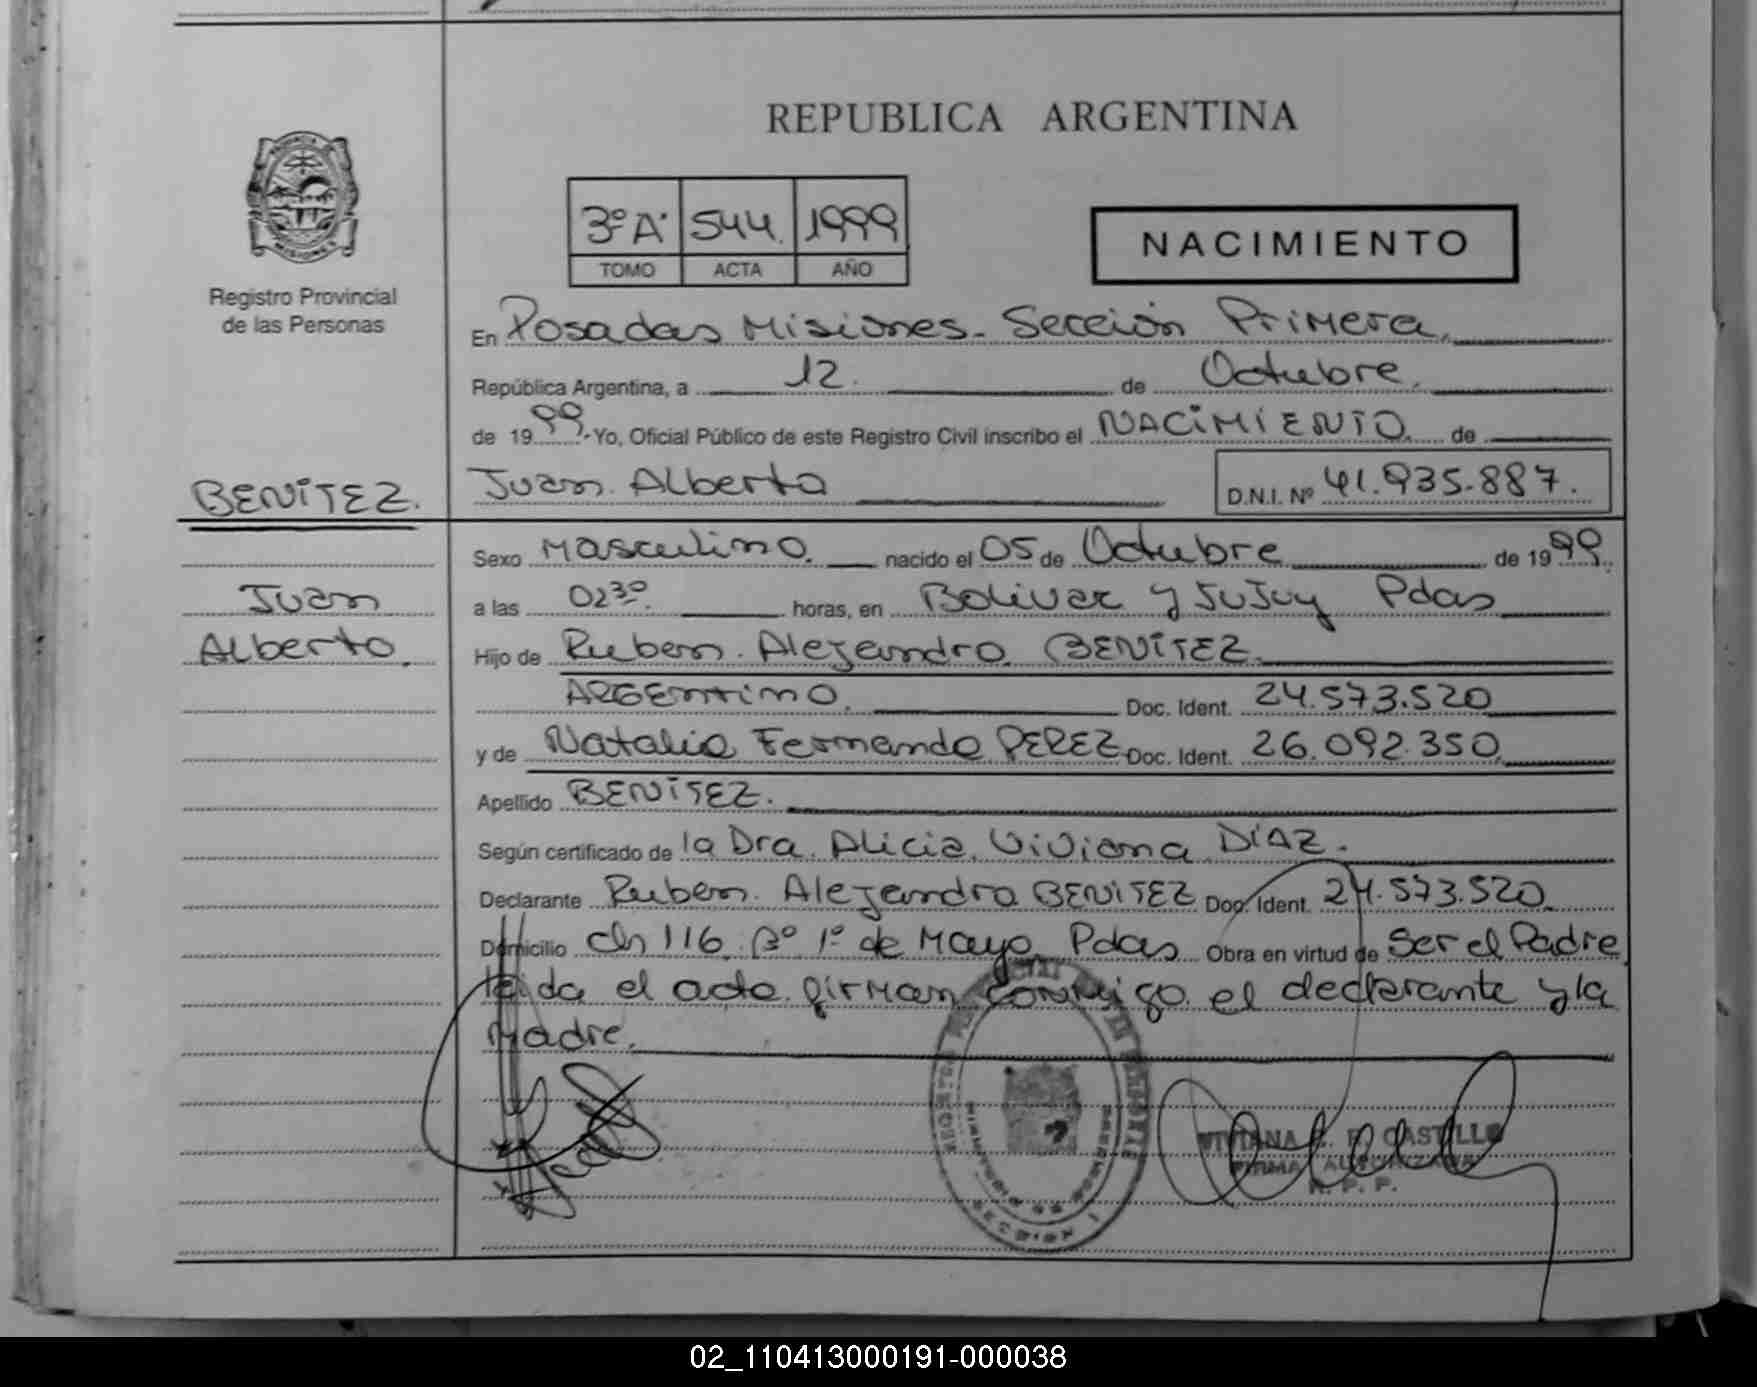 REPUBLICA ARGENTINA
3º A. 544. 1999
TOMO ACTA AÑO
NACIMIENTO
Registro Provincial
de las Personas
En Posadas Misiones. Sección Primera.
República Argentina, a 12. de Octubre.
de 1999.-Yo, Oficial Público de este Registro Civil inscribo el NACIMIENTO. de
BENITEZ.
Juan Alberto
D.N.I. Nº 41.935.887.
Sexo Masculino. nacido el 05 de Octubre de 1999.
Juan
Alberto.
a las 02³⁰. horas, en Bolivar y JuJuy Pdas
Hijo de Ruben. Alejandro. BENITEZ.
ARGENtiNO. Doc. Ident. 24.573.520
y de Natalia Fernanda PEREZ Doc. Ident. 26.092.350.
Apellido BENITEZ.
Según certificado de la Dra. Alicia. Viviana DIAZ.
Declarante Ruben. Alejandro BENITEZ Doc. Ident. 24.573.520.
Domicilio ch 116. Bº 1º de Mayo Pdas Obra en virtud de Ser el Padre
leida el acta firman conmigo el declarante y la
Madre.
VIVIANA CASTILLO
FIRMA AUTORIZADA
R. P. P.
SECCION 1
02_110413000191-000038